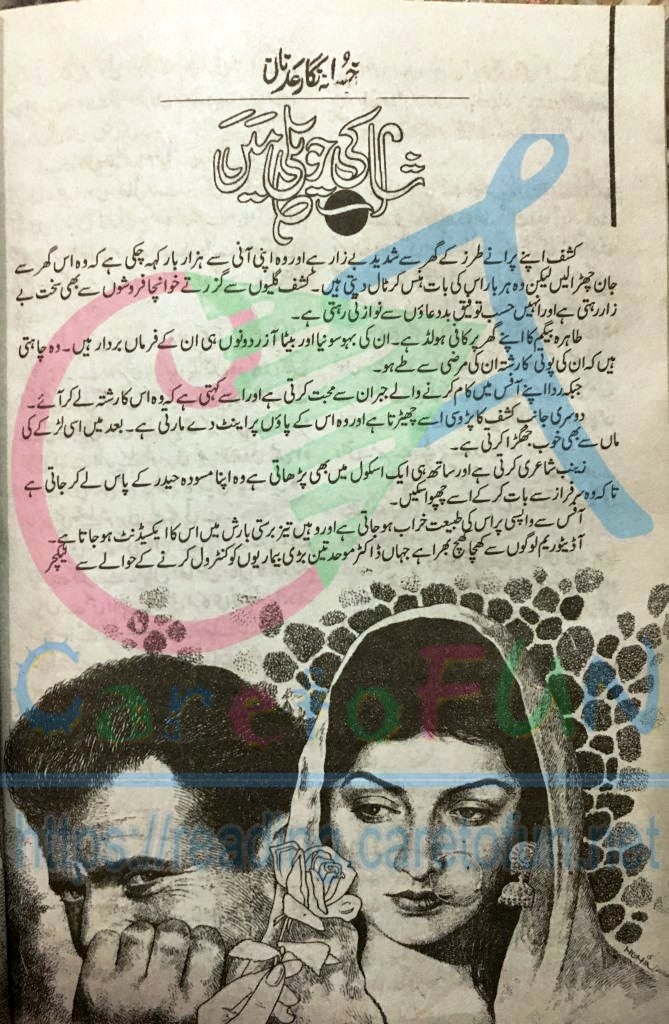 شام کی حویلی میں
کشف اپنے پرانے طرز کے گھر سے شدید بے زار ہے اور وہ اپنی آنی سے ہزار بار کہہ چکی ہے کہ وہ اس گھر سے
جان چھڑالیں لیکن وہ ہر بار اس کی بات ہنس کر ٹال دیتی ہیں۔ کشف گلیوں سے گزرتے خوانچا فروشوں سے بھی سخت بے
زار رہتی ہے اور انہیں حسب توفیق بددعاؤں سے نوازتی رہتی ہے۔
طاہرہ بیگم کا اپنے گھر پر کافی ہولڈ ہے۔ ان کی بہو سونیا اور بیٹا آزر دونوں ہی ان کے فرماں بردار ہیں۔ وہ چاہتی
ہیں کہ ان کی پوتی کا رشتہ ان کی مرضی سے طے ہو۔
جبکہ ردا اپنے آفس میں کام کرنے والے جبران سے محبت کرتی ہے اور اسے کہتی ہے کہ وہ اس کا رشتہ لے کر آئے۔
دوسری جانب کشف کا پڑوسی اسے چھیڑتا ہے اور وہ اس کے پاؤں پر اینٹ دے مارتی ہے۔ بعد میں اسی لڑکے کی
ماں سے بھی خوب جھگڑا کرتی ہے۔
زینب شاعری کرتی ہے اور ساتھ ہی ایک اسکول میں بھی پڑھاتی ہے وہ اپنا مسودہ حیدر کے پاس لے کر جاتی ہے
تاکہ وہ سرفراز سے بات کر کے اسے چھپوا سکیں۔
آفس سے واپسی پر اس کی طبیعت خراب ہو جاتی ہے اور وہیں تیز برستی بارش میں اس کا ایکسیڈنٹ ہو جاتا ہے۔
آڈیٹوریم لوگوں سے کھچا کھچ بھرا ہے جہاں ڈاکٹر موحد تین بڑی بیماریوں کو کنٹرول کرنے کے حوالے سے لیکچر
CaretoFUN
https://reading.caretofun.net